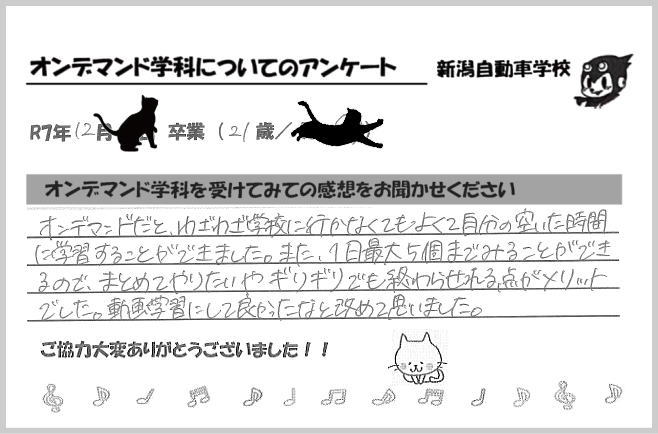 オンデマンド学科についてのアンケート
新潟自動車学校
R7年12月 卒業 (21歳/
オンデマンド学科を受けてみての感想をお聞かせください
オンデマンドだと、わざわざ学校に行かなくてもよくて自分の空いた時間
に学習することができました。また、1日最大5個までみることができ
るので、まとめてやりたいやギリギリでも終わらせれる点がメリット
でした。動画学習にして良かったなと改めて思いました。
ご協力大変ありがとうございました!!